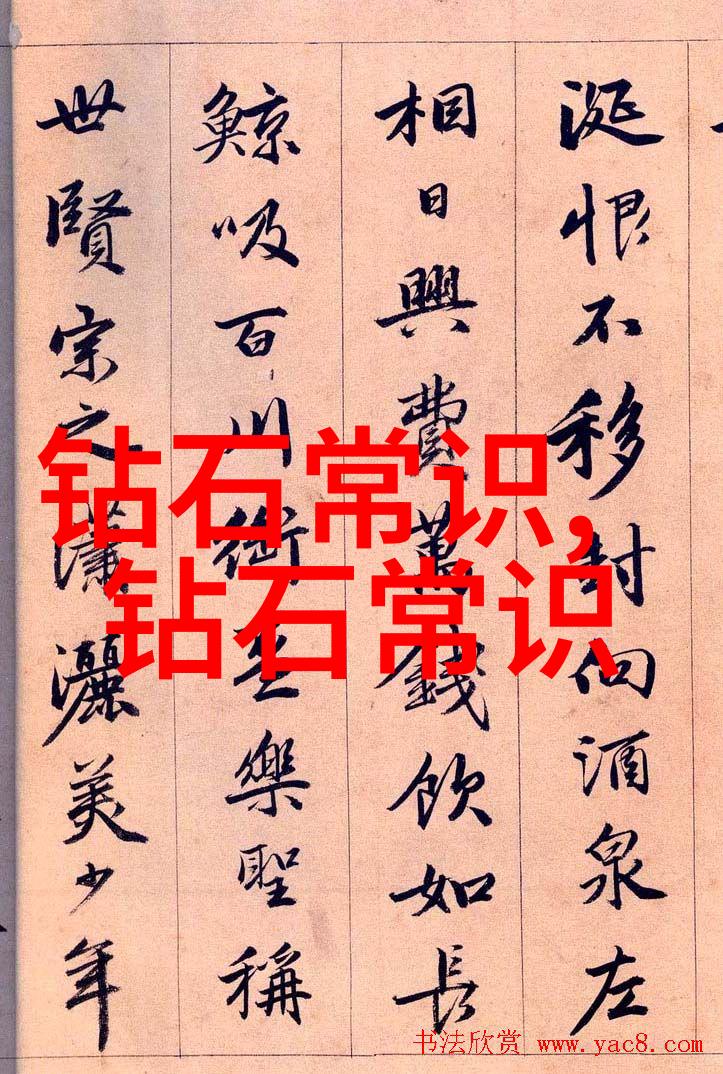 涎恨不移封向酒泉左
相日興費萬錢飲如長
鯨吸百川銜樂聖稱
世賢宗之瀟灑美少年
钻石常识,
钻石常识
书法欣赏 www.yac8.com